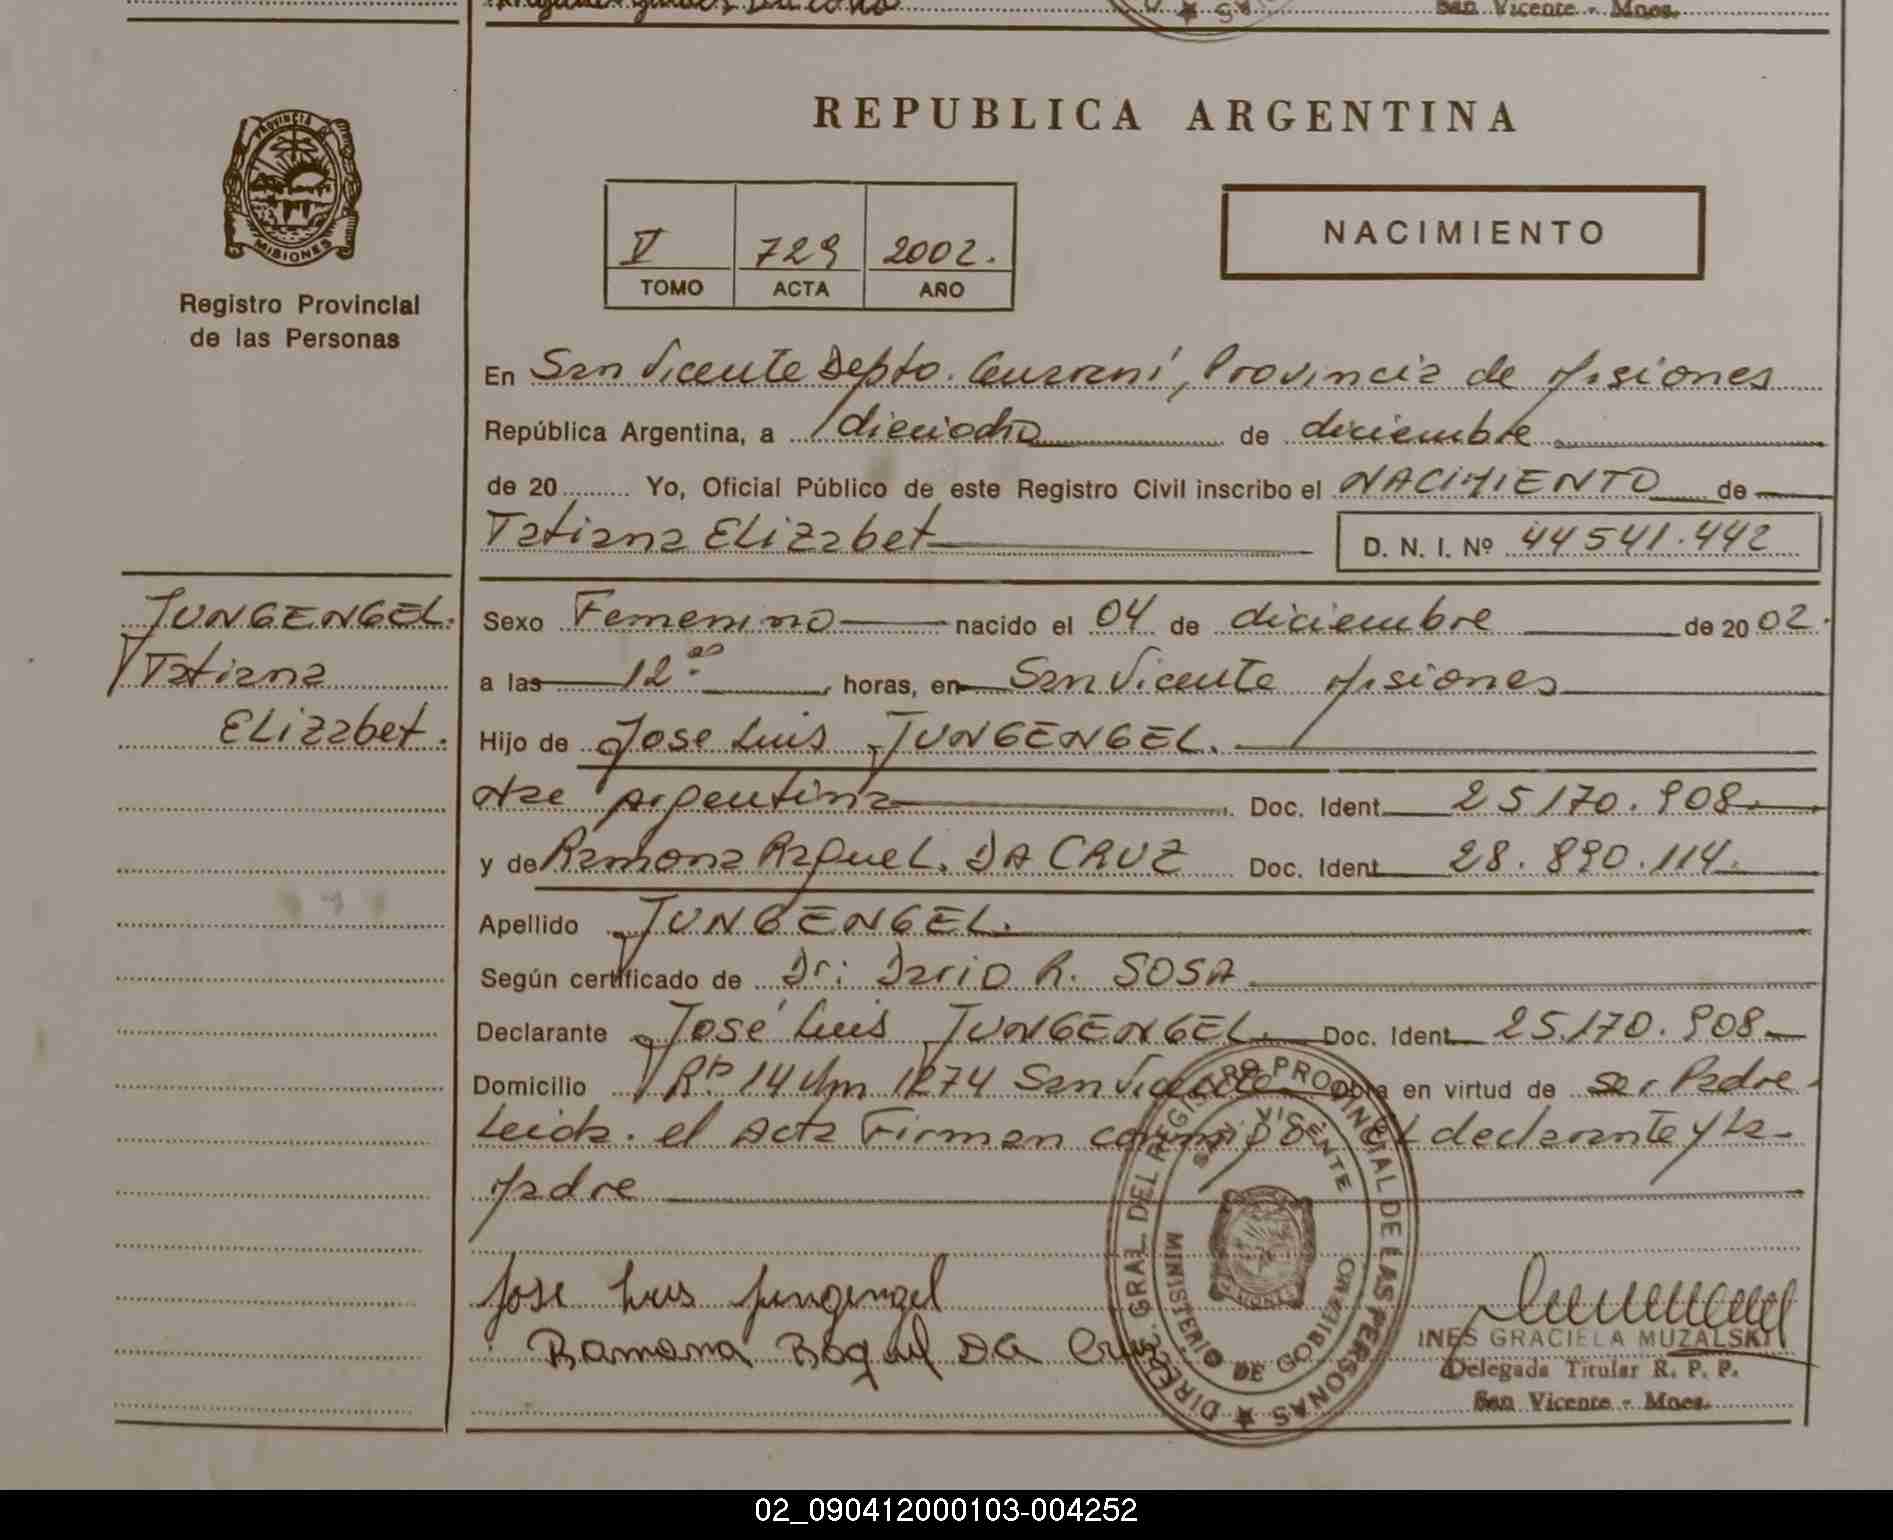 San Vicente - Mnes.
REPUBLICA ARGENTINA
PROVINCIA DE
MISIONES
Registro Provincial
de las Personas
V 729 2002.
TOMO ACTA AÑO
NACIMIENTO
En San Vicente Depto. Guaraní, Provincia de Misiones
República Argentina, a dieciocho de diciembre
de 20 Yo, Oficial Público de este Registro Civil inscribo el NACIMIENTO de
Tatiana Elizabet D. N. I. Nº 44541.442
JUNGENGEL.
Tatiana
Elizabet.
Sexo Femenino nacido el 04 de diciembre de 2002.
a las 12:00 horas, en San Vicente Misiones
Hijo de Jose Luis JUNGENGEL.
Nac Argentina Doc. Ident 25170.908
y de Ramona Raquel. DA CRUZ Doc. Ident 28.890.114.
Apellido JUNGENGEL.
Según certificado de Dr: Dario R. SOSA
Declarante José Luis JUNGENGEL. Doc. Ident 25.170.908
Domicilio Rta 14 Km 1274 San Vicente Obra en virtud de ser Padre
Leida. el Acta Firman conmigo el declarante y la
Madre
Jose Luis Jungengel
Ramona Raquel Da Cruz
DIREC. GRAL. DEL REGISTRO PROVINCIAL DE LAS PERSONAS
SAN VICENTE
MINISTERIO DE GOBIERNO
INES GRACIELA MUZALSKI
Delegada Titular R. P. P.
San Vicente - Mnes.
02_090412000103-004252